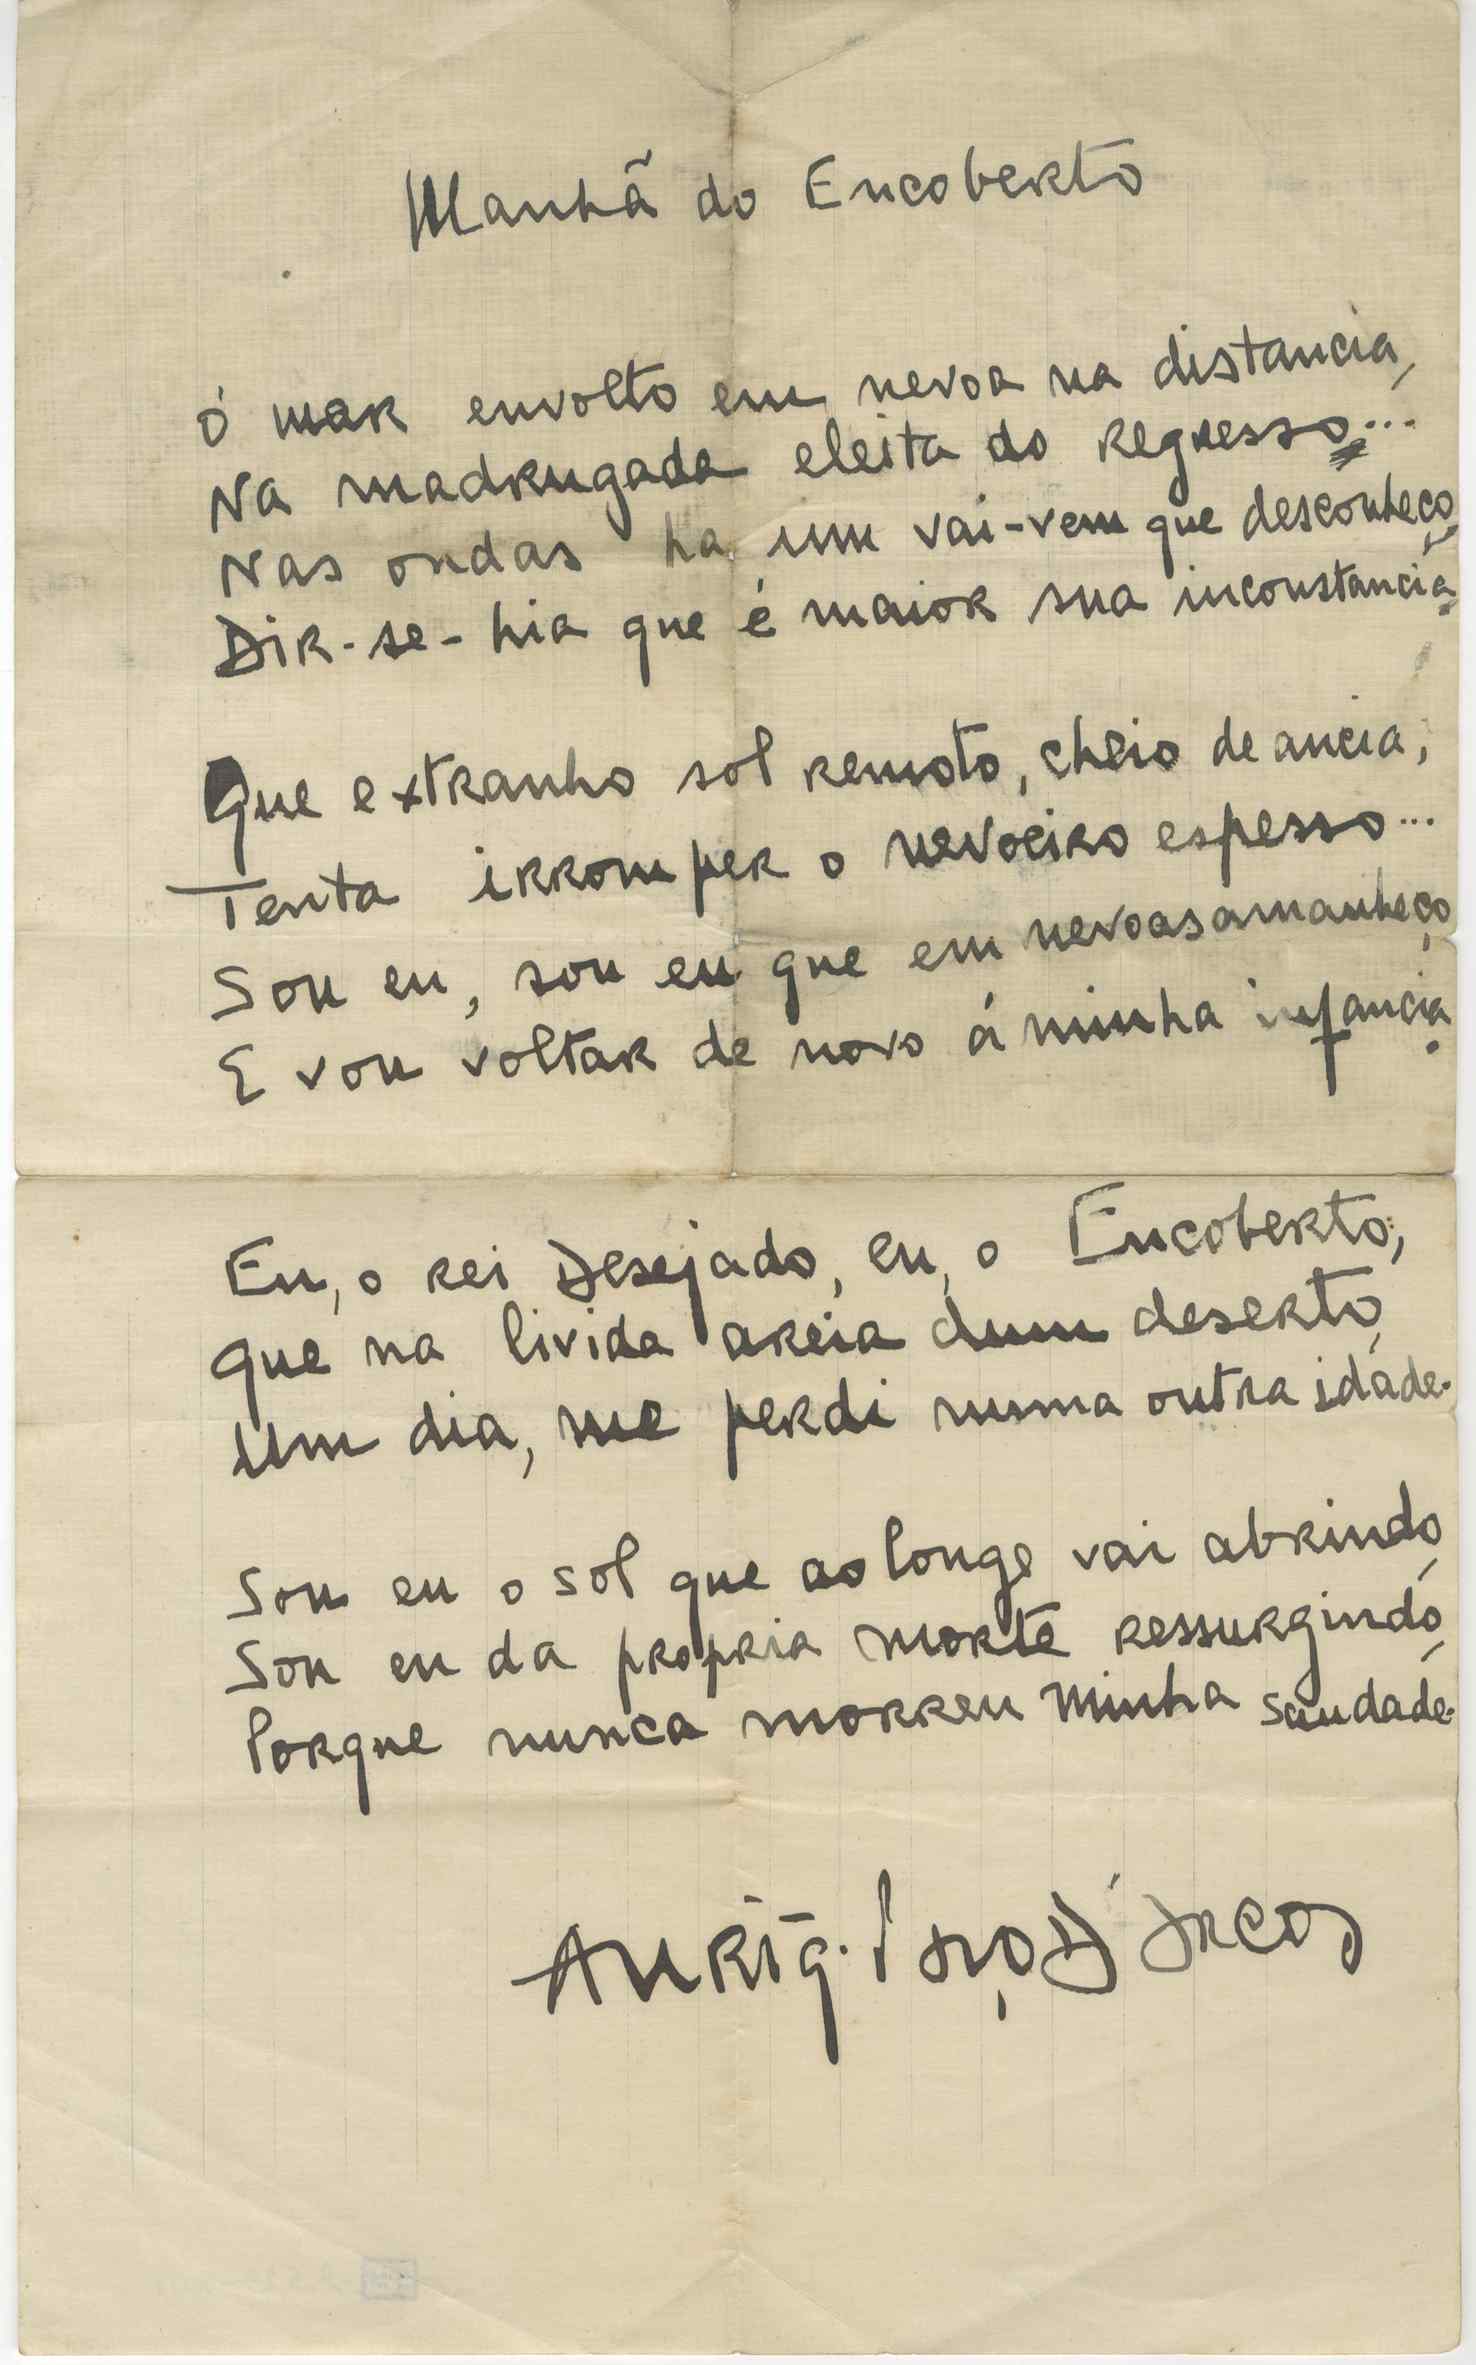 Manhã do Encoberto
Ó mar envolto em nevoa na distancia,
Na madrugada eleita do regresso...
Nas ondas ha um vai-vem que desconheço,
Dir-se-hia que é maior sua inconstancia.
Que extranho sol remoto, cheio de ancia,
Tenta irromper o nevoeiro espesso...
Sou eu, sou eu que em nevoas amanheço
E vou voltar de novo á minha infancia.
Eu, o rei Desejado, eu, o Encoberto,
Que na livida areia dum deserto,
Um dia, me perdi numa outra idade.
Sou eu o sol que ao longe vai abrindo,
Sou eu da propria morte ressurgindo,
Porque nunca morreu minha saudade.
Anriq. Paço D'Arcos